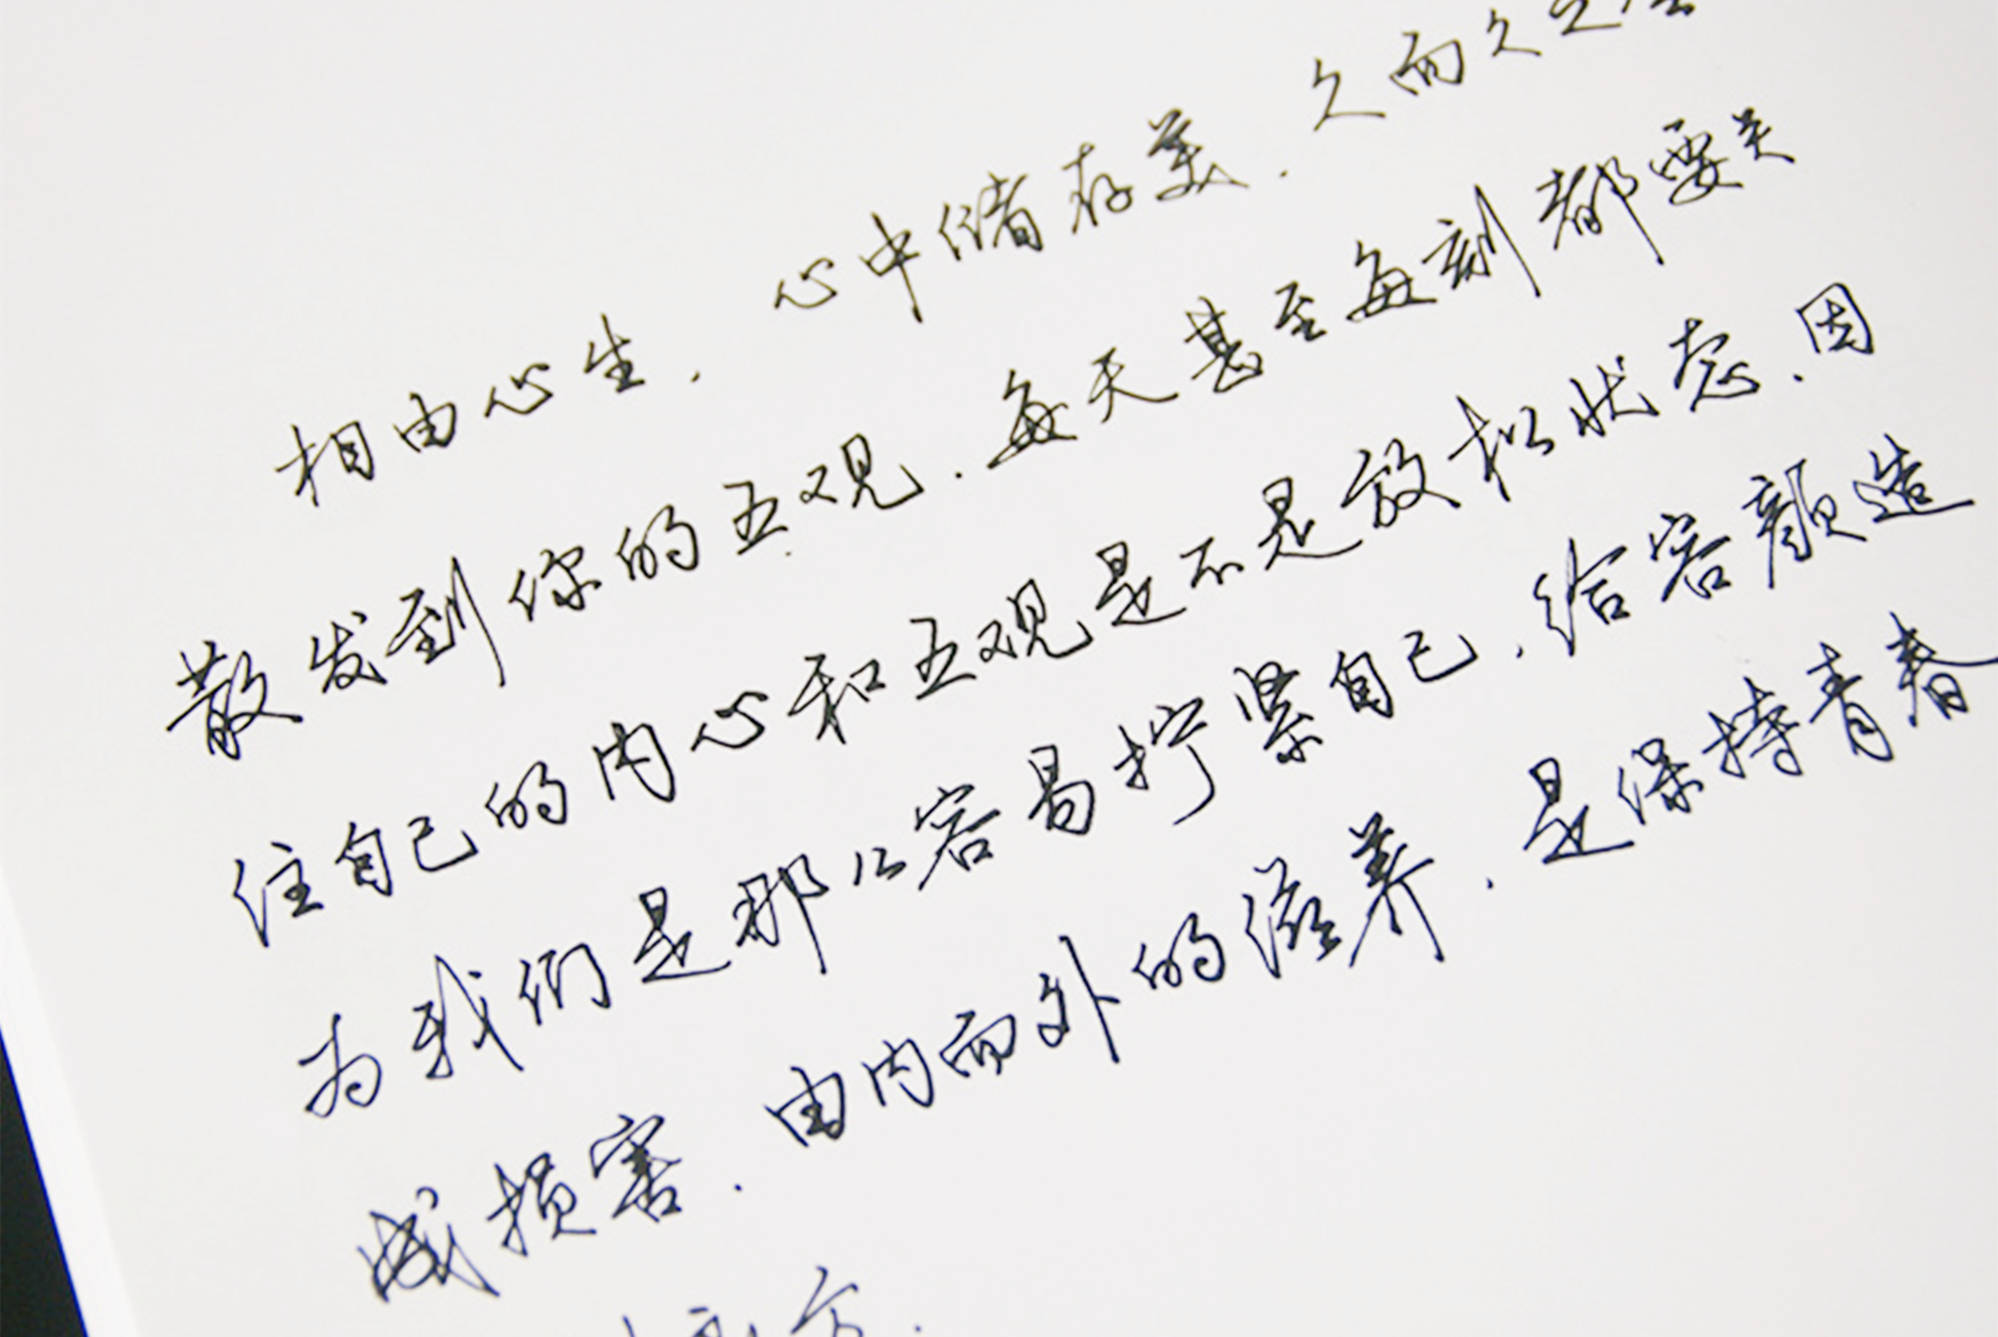 相由心生，心中储存美，久而久之
散发到你的五观，每天甚至每刻都要关
住自己的内心和五观是不是放松状态，因
为我们是那么容易拧紧自己，给容颜造
成损害，由内而外的滋养，是保持青春
方，